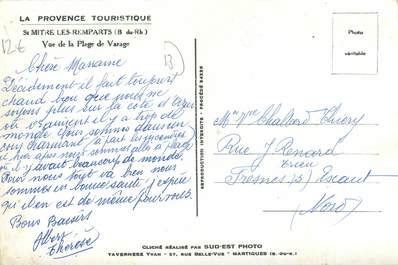 LA PROVENCE TOURISTIQUE
St MITRE LES-REMPARTS (B. du-Rh.)
Vue de la Plage de Varage
12€
13
Photo
véritable
Chère Marraine
Décidement il fait toujours
chaud bien que nous ne
soyons plus sur la cote d'azur
où vraiment il y a trop de
monde. Nous sommes dans un
coin charmant à part les
et hier apres nous sommes allés à plage
où il y avait beaucoup de monde.
Pour nous tout va bien nous
sommes en bonne santé j'espère
qu'il en est de même pour vous.
Bons Baisers
Albert
Thérèse
REPRODUCTION INTERDITE - PROCÉDÉ BAKER
Mr Mme Thiery
Rue J Renard
Fresnes (s) Escaut
(Nord)
CLICHÉ RÉALISÉ PAR SUD-EST PHOTO
TAVERNESE YVAN - 27, RUE BELLE-VUE - MARTIGUES (B.-DU-R.)